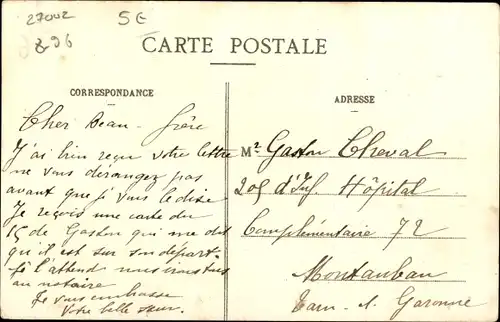 27002
5E
296
CARTE POSTALE
CORRESPONDANCE
ADRESSE
Cher Beau-frère
J'ai bien reçu votre lettre
ne vous dérangez pas
avant que je vous le dise
Je reçois une carte du
15 de Gaston qui me dit
qu'il est sur son départ
je l'attend nous irons tous
au notaire
Je vous embrasse
Votre belle sœur.
Mr Gaston Cheval
205 d'Inf. Hôpital
Complémentaire 72
Montauban
Tarn. et. Garonne